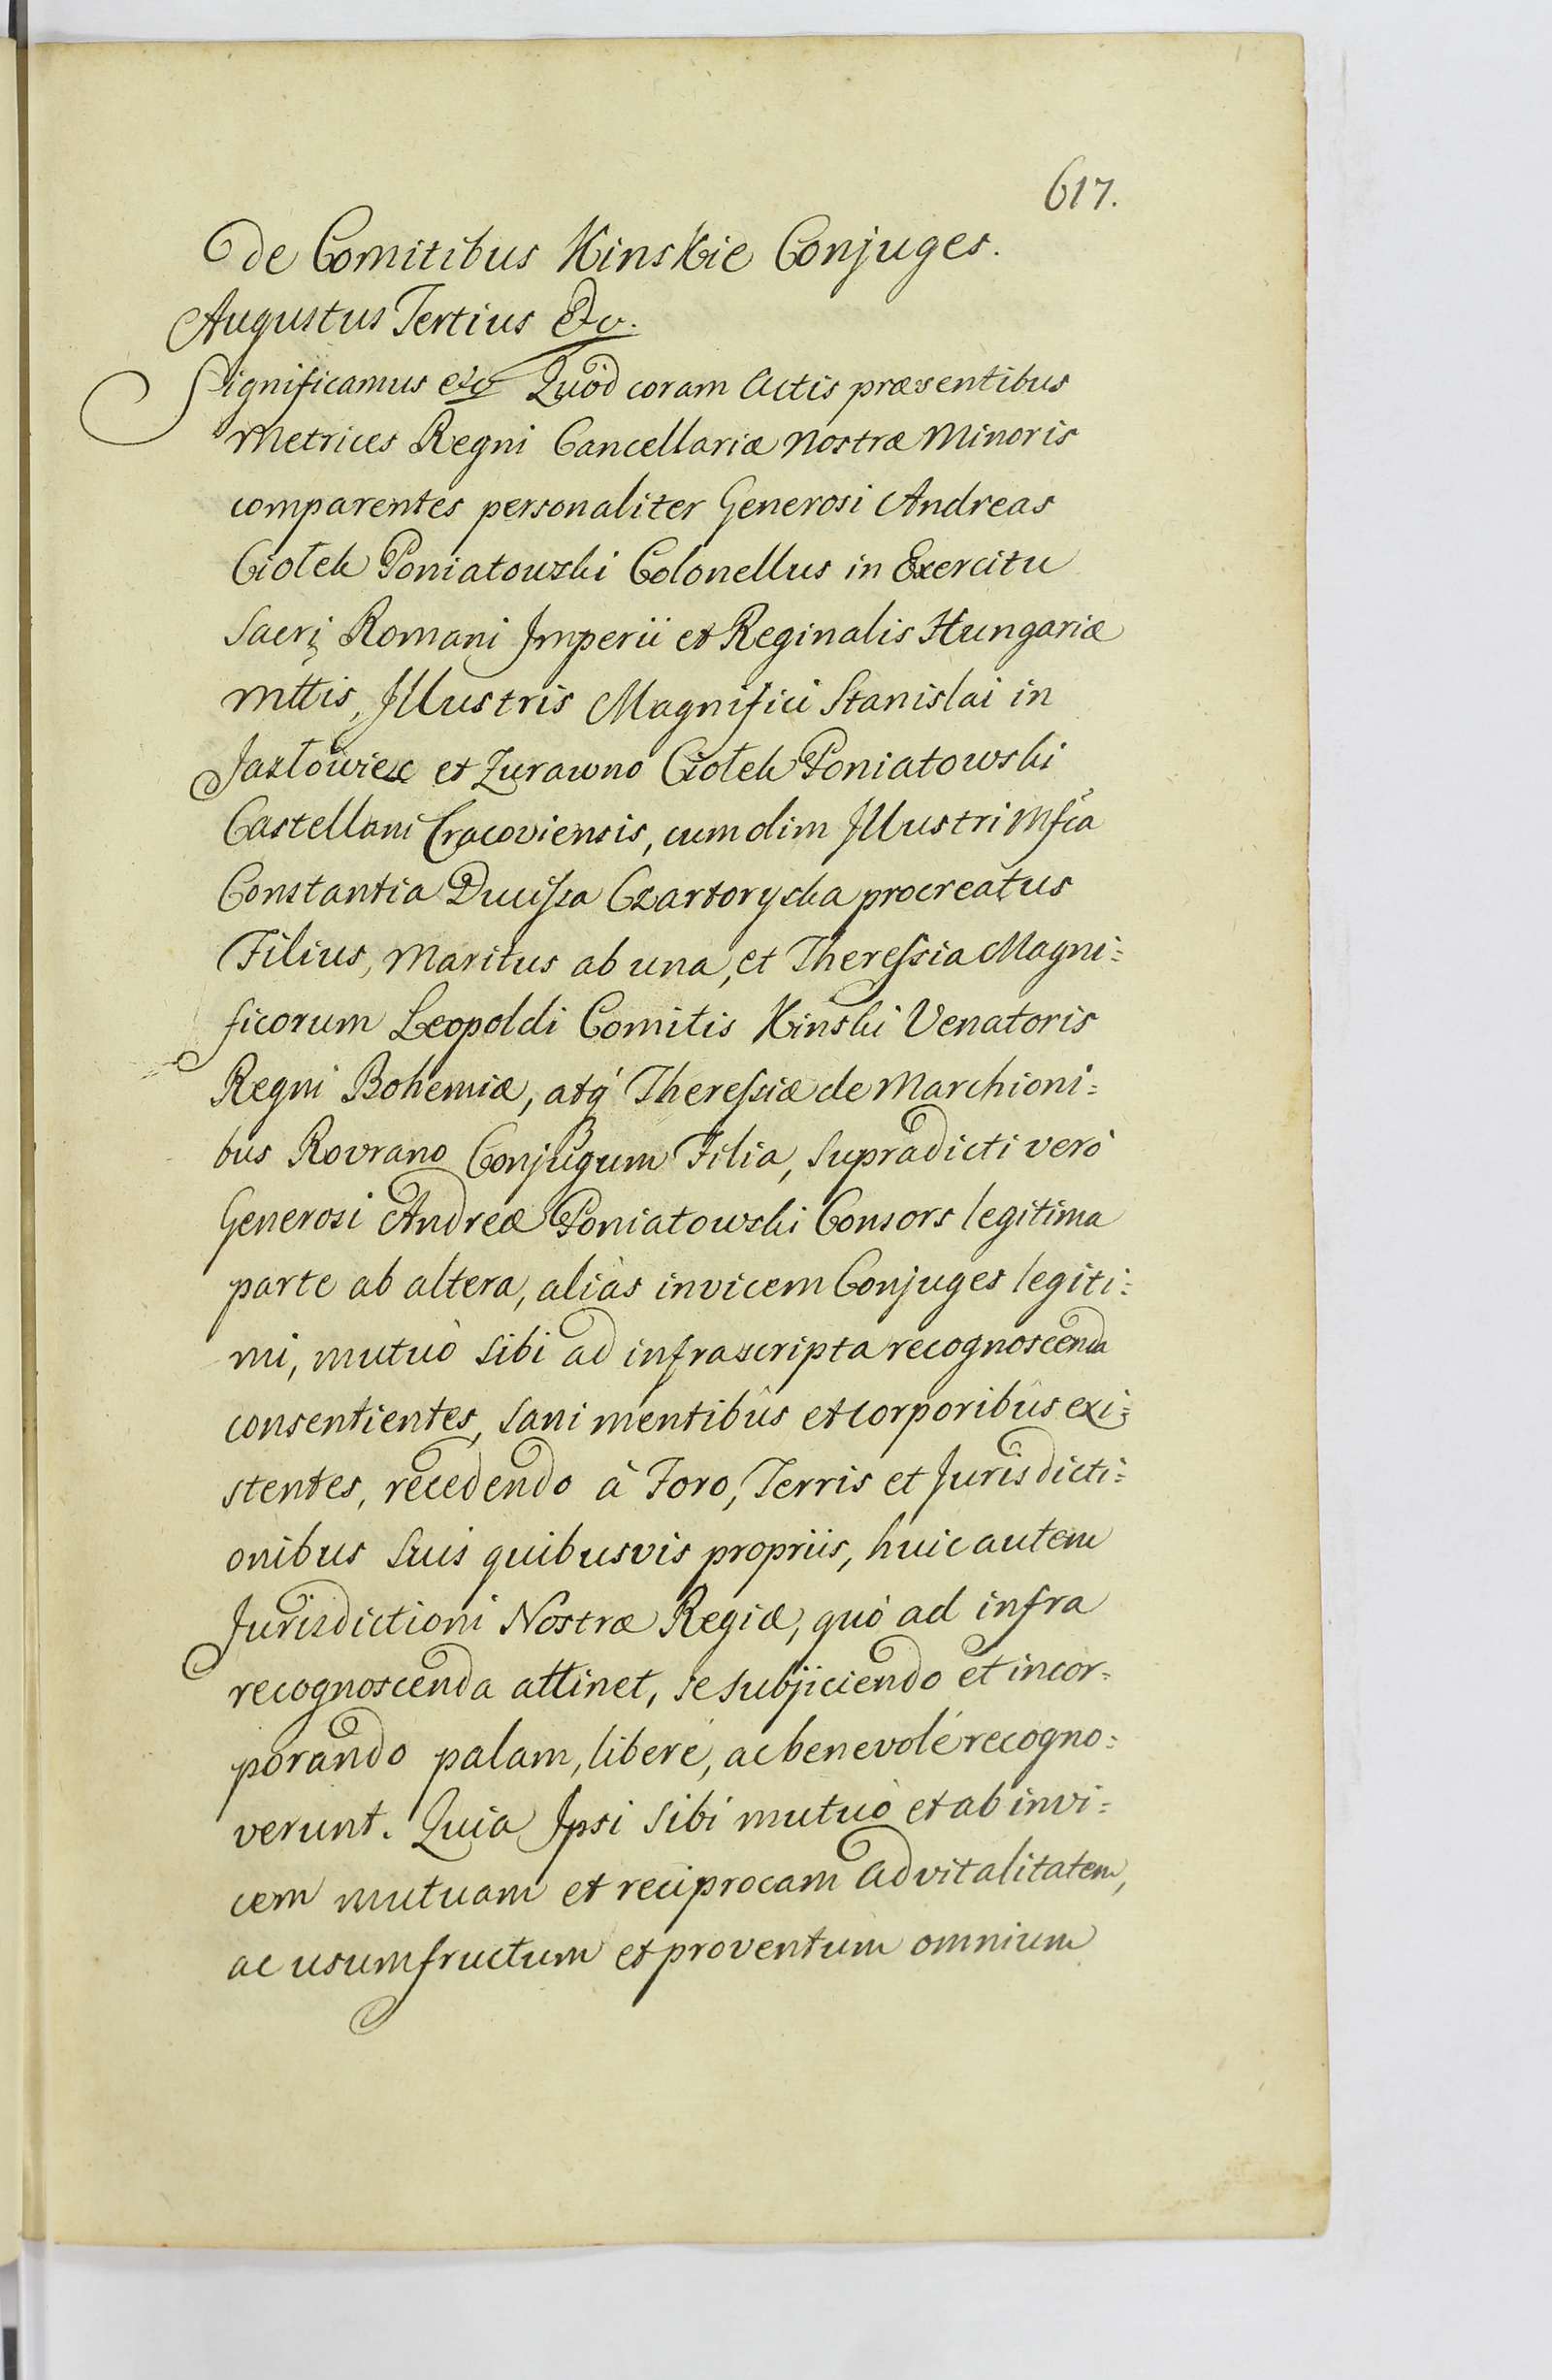 617.
de Comitibus Kinskie Conjuges.
Augustus Tertius etc.
Significamus etc Quòd coram Actis præsentibus
Metrices Regni Cancellariæ Nostræ Minoris
comparentes personaliter Generosi Andreas
Ciołek Poniatowski Colonellus in Exercitu
Sacri Romani Imperii et Reginalis Hungariæ
Mttis, Illustris Magnifici Stanislai in
Jazłowiec et Zurawno Ciołek Poniatowski
Castellani Cracoviensis, cum olim Illustri Mfca
Constantia Ducissa Czartoryska procreatus
Filius, Maritus ab una, et Theressia Magni:
ficorum Leopoldi Comitis Kinski Venatoris
Regni Bohemiæ, atq́ Theressiæ de Marchioni:
bus Rovrano Conjugum Filia, Supradicti verò
Generosi Andreæ Poniatowski Consors legitima
parte ab altera, aliàs invicem Conjuges legiti:
mi, mutuò sibi ad infrascripta recognoscenda
consentientes, Sani mentibûs et corporibûs exi:
stentes, recedendo à Foro, Terris et Jurisdicti:
onibus Suis quibusvis propriis, huic autem
Jurisdictioni Nostræ Regiæ, quò ad infra
recognoscenda attinet, se subjiciendo et incor:
porando palam, liberé, ac benevolé recogno:
verunt. Quia Ipsi Sibi mutuò et ab invi:
cem mutuam et reciprocam Advitalitatem,
ac usumfructum et proventum omnium